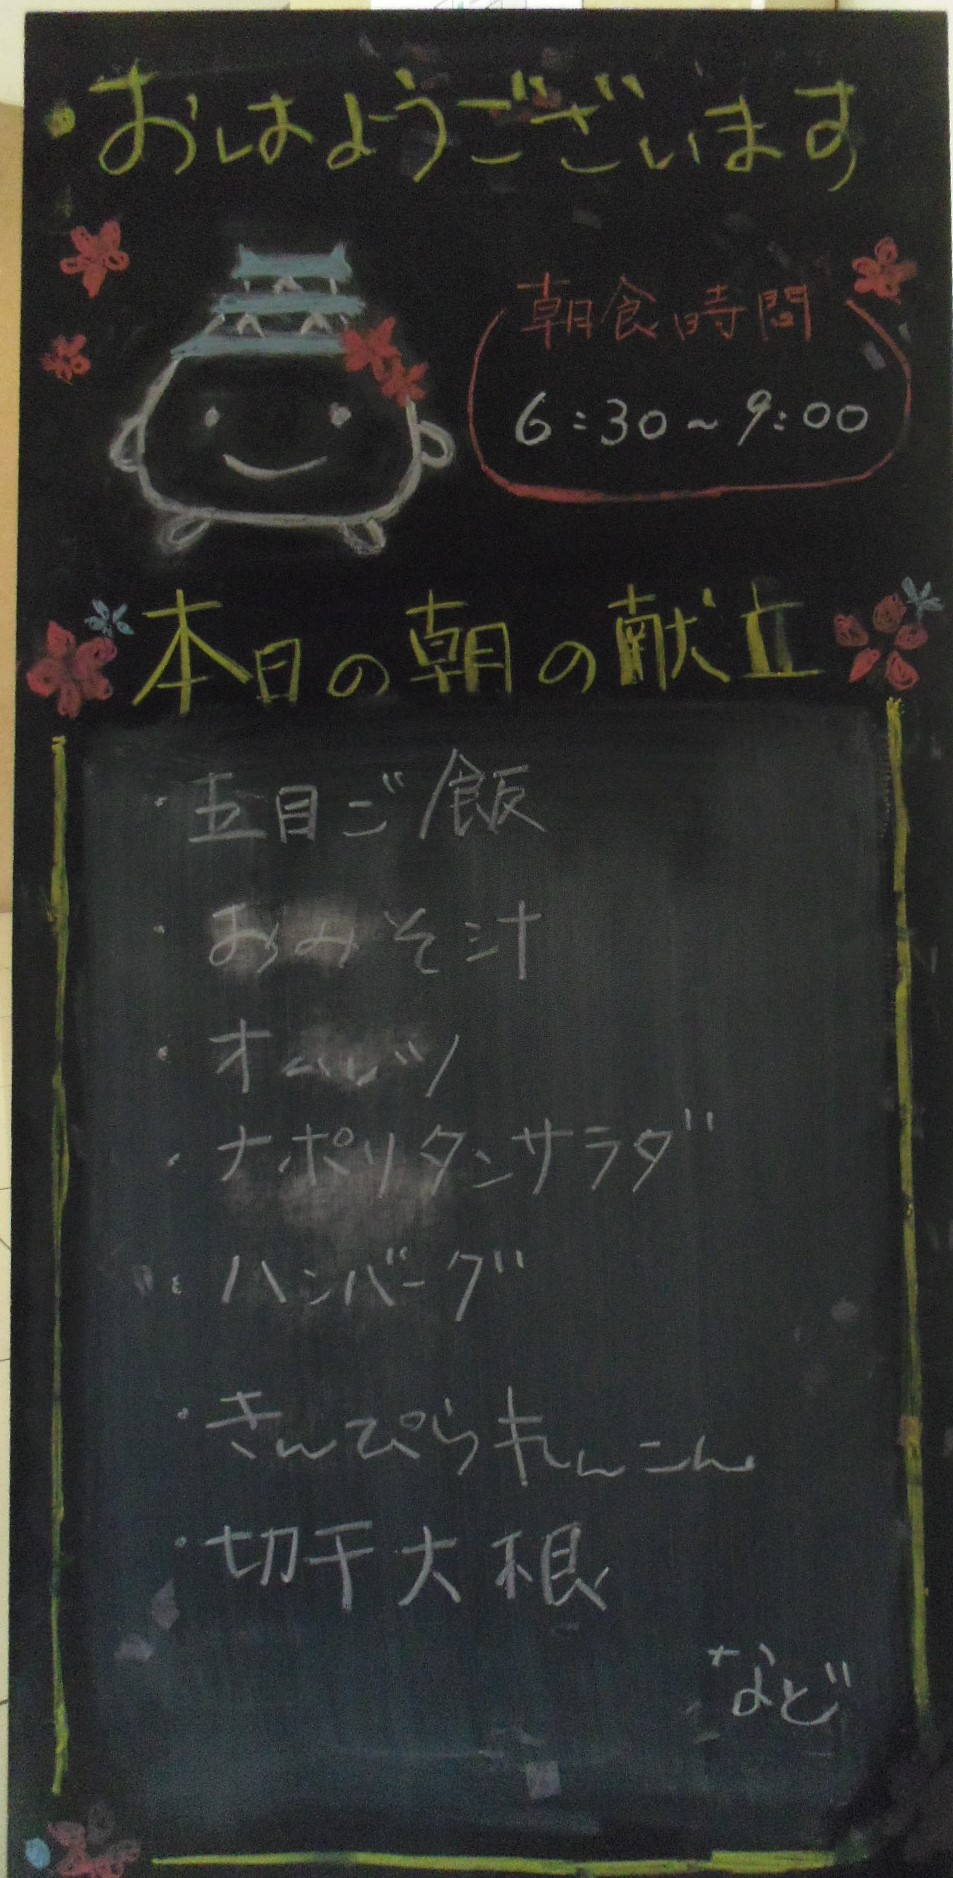 おはようございます
朝食時間
6:30~9:00
本日の朝の献立
・五目ご飯
・おみそ汁
・オムレツ
・ナポリタンサラダ
・ハンバーグ
・きんぴられんこん
・切干大根
など